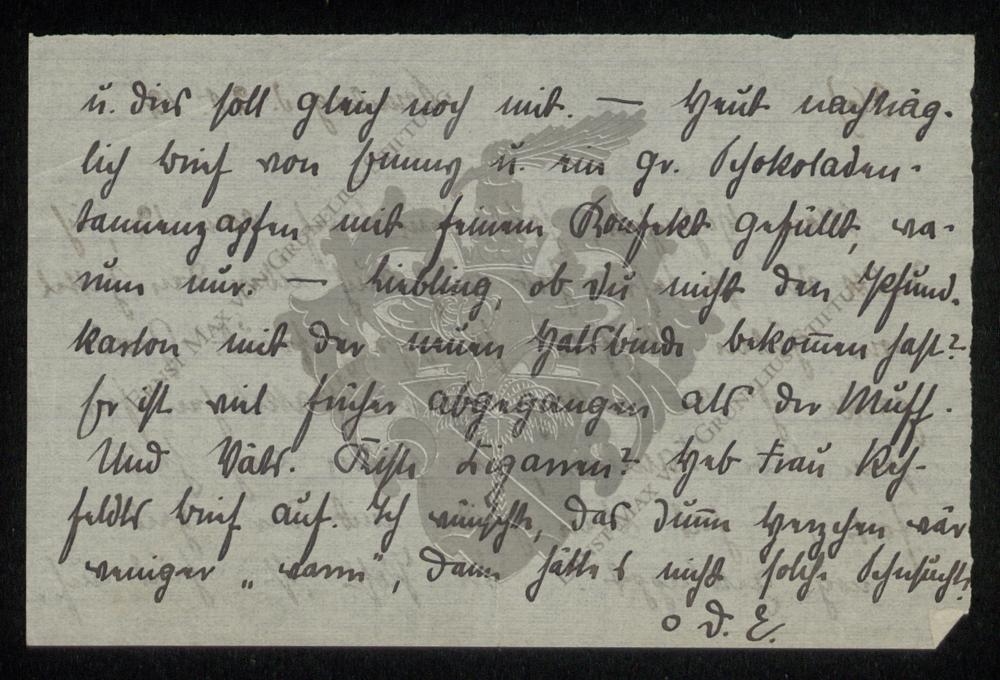 u. dies soll gleich noch mit. — Heut nachträg-
lich Brief von Emmy u. ein gr. Schokoladen-
tannenzapfen mit feinem Konfekt gefüllt, wa-
rum nur. — Liebling, ob Du nicht den Pfund-
karton mit der neuen Halsbinde bekom̅en hast?
Er ist viel früher abgegangen als der Muff.
Und Väts. Kiste Zigarren? Heb Frau Reh-
feldts Brief auf. Ich wünschte, das dum̅e Herzchen wär
weniger „warm“, dann hätte s nicht solche Sehnsucht!
o D. E.
ERNST MAX VON GRUNELIUS-STIFTUNG
ERNST MAX VON GRUNELIUS-STIFTUNG